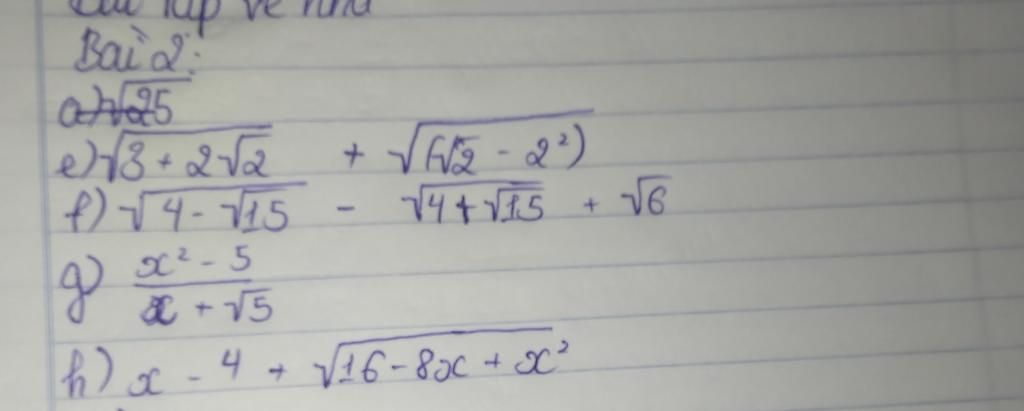 Bài tập về nhà
Bài 2:
a) √25
e) √(3 + 2√2) + √((√2 - 2²))
f) √(4 - √15) - √(4 + √15) + √6
g) (x² - 5)/(x + √5)
h) x - 4 + √(16 - 8x + x²)